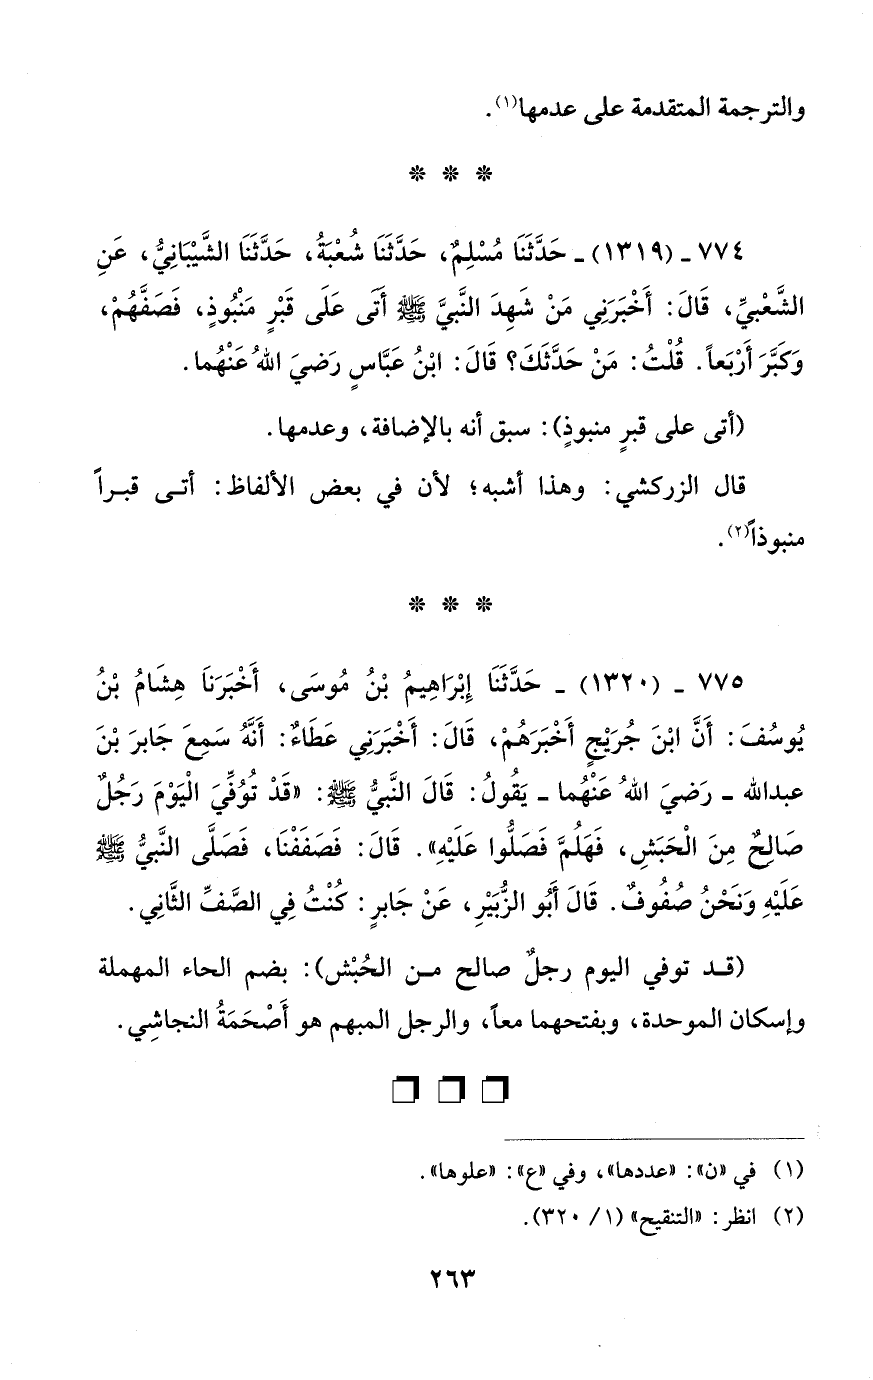 والترجمة المتقدمة على عدمها(١).
* * *
٧٧٤ ـ (١٣١٩) ـ حَدَّثَنَا مُسْلِمٌ، حَدَّثَنَا شُعْبَةُ، حَدَّثَنَا الشَّيْبَانِيُّ، عَنِ
الشَّعْبيِّ، قَالَ: أَخْبَرَنِي مَنْ شَهِدَ النَّبيَّ ﷺ أَتَى عَلَى قَبْرٍ مَنْبُوذٍ، فَصَفَّهُمْ،
وَكَبَّرَ أَرْبَعاً. قُلْتُ: مَنْ حَدَّثَكَ؟ قَالَ: ابْنُ عَبَّاسٍ رَضيَ اللهُ عَنْهُما.
(أتى على قبرٍ منبوذٍ): سبق أنه بالإضافة، وعدمها.
قال الزركشي: وهذا أشبه؛ لأن في بعض الألفاظ: أتـى قبـراً
منبوذاً(٢).
* * *
٧٧٥ ـ (١٣٢٠) ـ حَدَّثَنَا إِبْرَاهِيمُ بْنُ مُوسَى، أَخْبَرَناَ هِشَامُ بْنُ
يُوسُفَ: أَنَّ ابْنَ جُرَيْجٍ أَخْبَرَهُمْ، قَالَ: أَخْبَرَنِي عَطَاءٌ: أَنَّهُ سَمِعَ جَابرَ بْنَ
عبدالله ـ رَضيَ اللهُ عَنْهُما ـ يَقُولُ: قَالَ النَّبيُّ ﷺ: «قَدْ تُوُفِّيَ الْيَوْمَ رَجُلٌ
صَالِحٌ مِنَ الْحَبَشِ، فَهَلُمَّ فَصَلُّوا عَلَيْهِ». قَالَ: فَصَفَفْنَا، فَصَلَّى النَّبيُّ ﷺ
عَلَيْهِ وَنَحْنُ صُفُوفٌ. قَالَ أَبُو الزُّبَيْرِ، عَنْ جَابرٍ: كُنْتُ فِي الصَّفِّ الثَّانِي.
(قـد توفي اليوم رجلٌ صالح مـن الحُبْش): بضم الحاء المهملة
وإسكان الموحدة، وبفتحهما معاً، والرجل المبهم هو أَصْحَمَةُ النجاشِي.
(١) في «ن»: «عددها»، وفي «ع»: «علوها».
(٢) انظر: «التنقيح» (١/ ٣٢٠).
٢٦٣